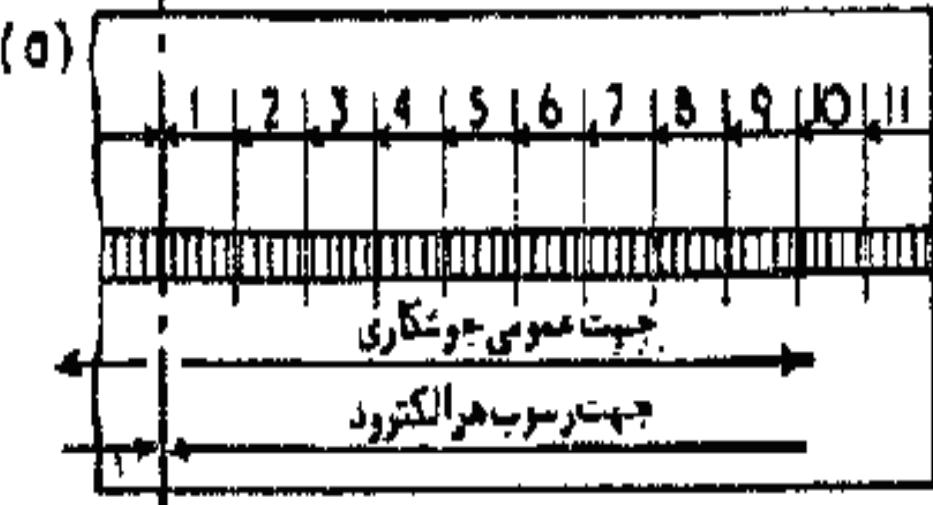 (a)
1 2 3 4 5 6 7 8 9 10 11
جهت عمومی جوشکاری
جهت رسوب هر الکترود
۱